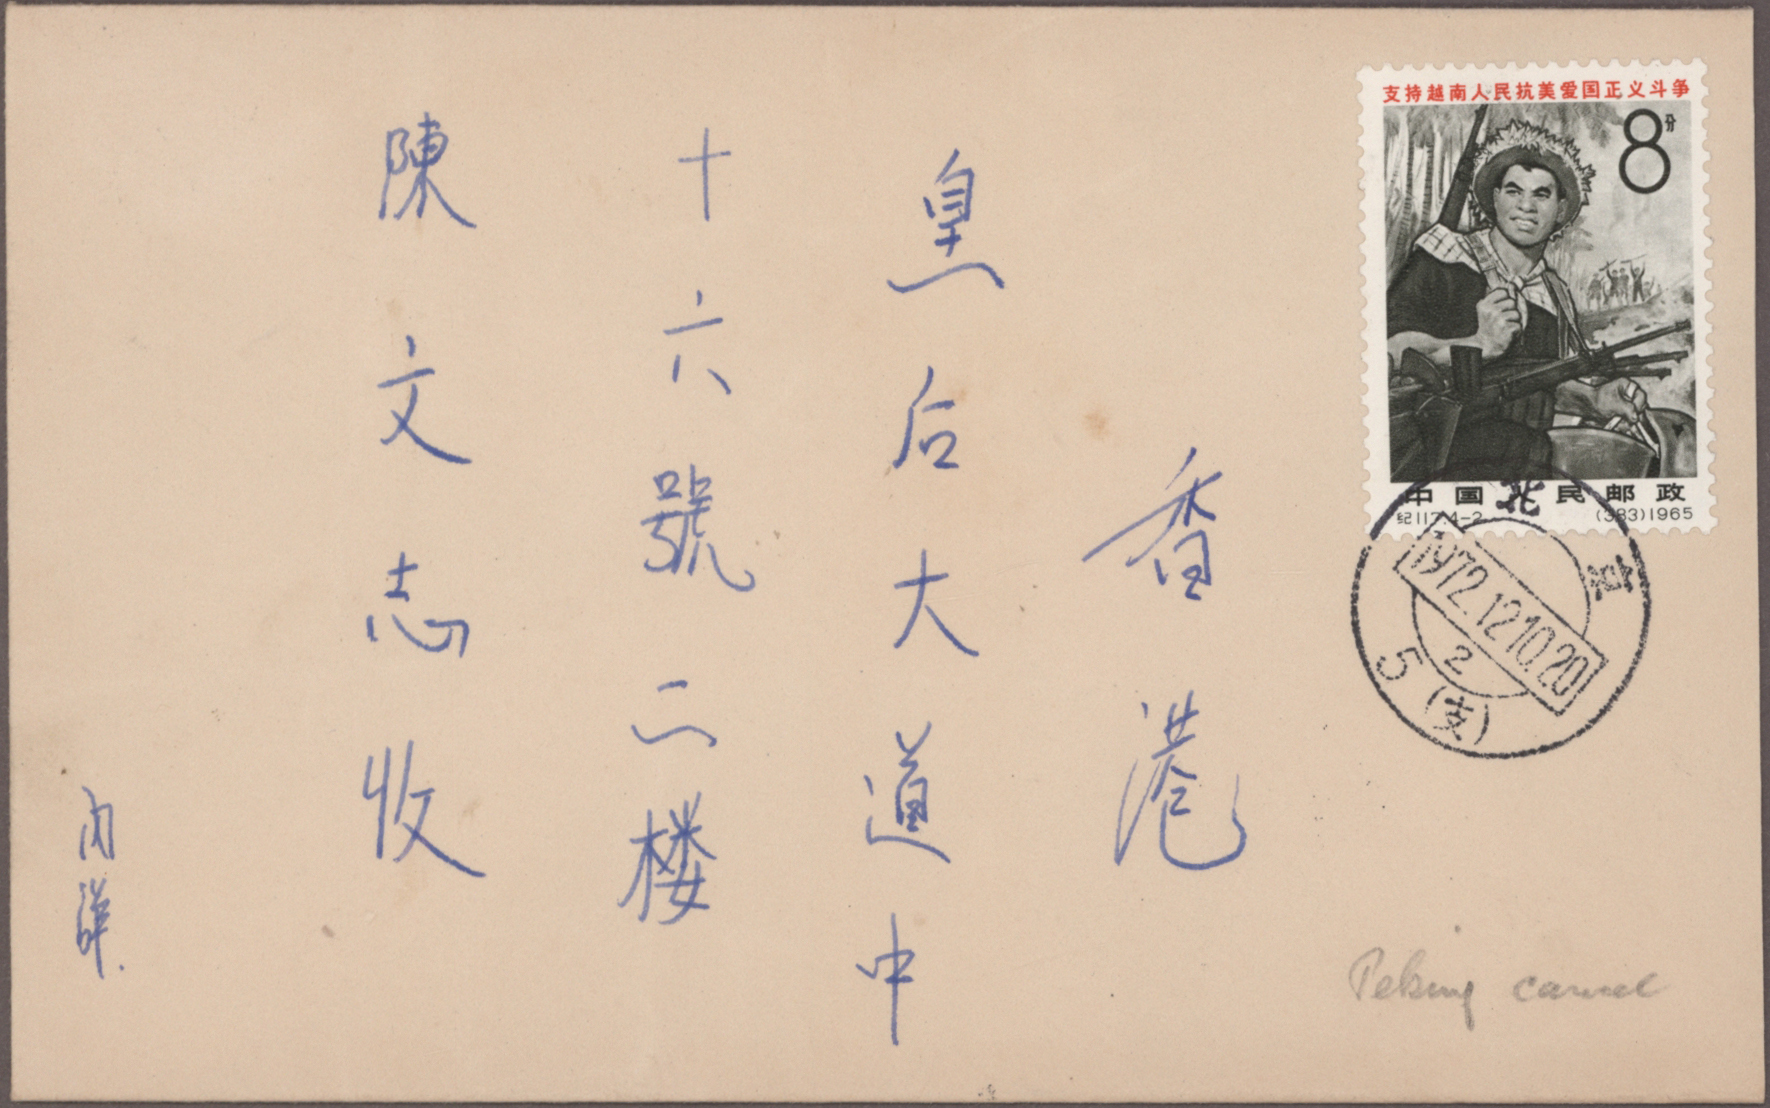 支持越南人民抗美爱国正义斗争
8分
中国人民邮政
纪117.4-2 (383)1965
北京
1972.12.10.20
2
5(支)
香港
皇后大道中
十六號二楼
陳文志收
内詳.
Peking cancel